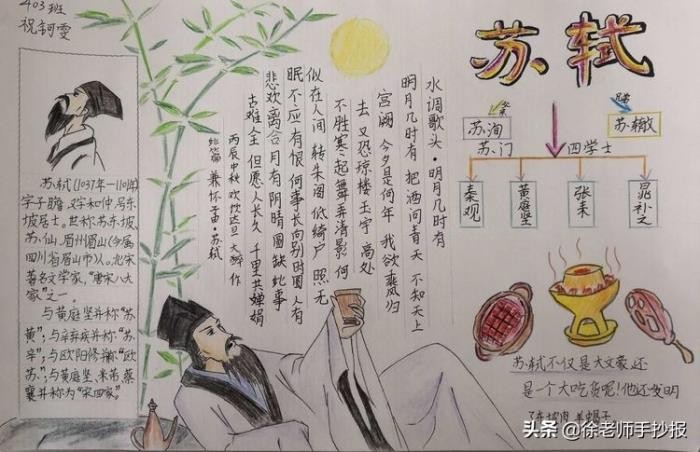 403班
祝钶雯
苏轼
苏轼(1037年-1101年
字子瞻,又字和仲,号东
坡居士。世称苏东坡、
苏仙,眉州眉山(今属
四川省眉山市)人。北宋
著名文学家,“唐宋八大
家”之一。
与黄庭坚并称“苏
黄”;与辛弃疾并称“苏
辛”;与欧阳修并称“欧
苏”;与黄庭坚、米芾、蔡
襄并称为“宋四家”。
水调歌头·明月几时有
明月几时有 把酒问青天 不知天上
宫阙 今夕是何年 我欲乘风归
去 又恐琼楼玉宇 高处
不胜寒 起舞弄清影 何
似在人间 转朱阁 低绮户 照无
眠 不应有恨 何事长向别时圆 人有
悲欢离合 月有阴晴圆缺 此事
古难全 但愿人长久 千里共婵娟
丙辰中秋 欢饮达旦 大醉 作
此篇 兼怀子由·苏轼
父
兄弟
苏洵
苏辙
苏门
四学士
秦观
黄庭坚
张耒
晁补之
苏轼不仅是大文豪,还
是一个大吃货呢!他还发明
了东坡肉、羊蝎子
头条 @徐老师手抄报